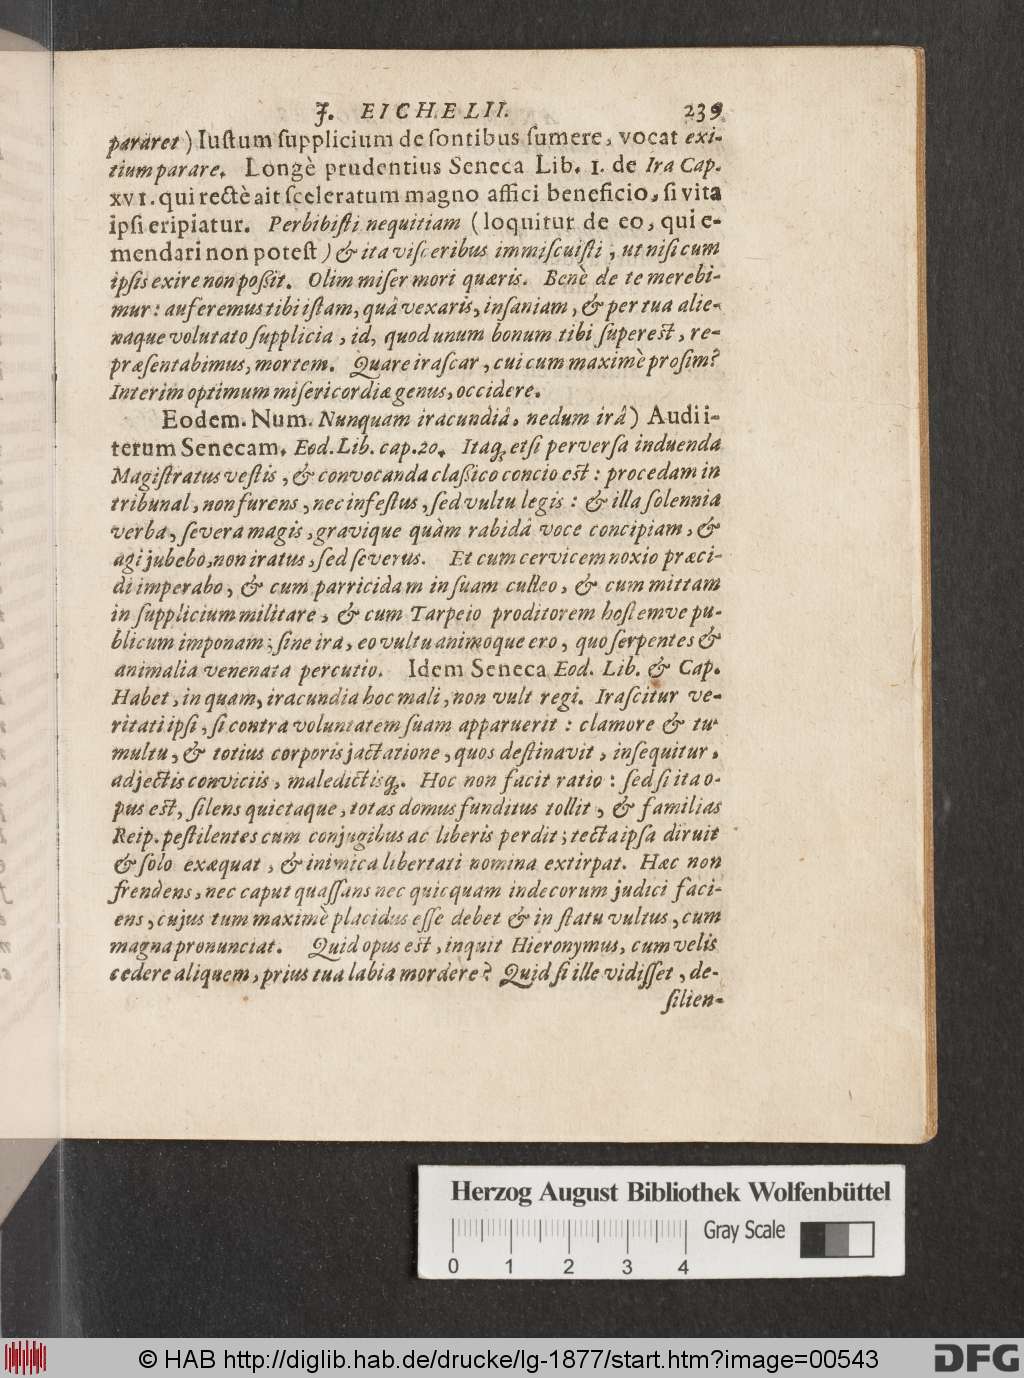 J. EICHELII. 239
pararet) Iustum supplicium de sontibus sumere, vocat exi-
tium parare. Longè prudentius Seneca Lib. 1. de Ira Cap.
XVI. qui rectè ait sceleratum magno affici beneficio, si vita
ipsi eripiatur. Perbibisti nequitiam (loquitur de eo, qui e-
mendari non potest) & ita visceribus immiscuisti, ut nisi cum
ipsis exire non possit. Olim miser mori quæris. Benè de te merebi-
mur: auferemus tibi istam, quâ vexaris, insaniam, & per tua alie-
naque volutato supplicia, id, quod unum bonum tibi superest, re-
præsentabimus, mortem. Quare irascar, cui cum maximè prosim?
Interim optimum misericordiæ genus, occidere.
Eodem. Num. Nunquam iracundiâ, nedum irâ) Audi i-
terum Senecam. Eod. Lib. cap. 20. Itaq; etsi perversa induenda
Magistratus vestis, & convocanda classico concio est: procedam in
tribunal, non furens, nec infestus, sed vultu legis: & illa solennia
verba, severa magis, gravique quàm rabidâ voce concipiam, &
agi jubebo, non iratus, sed severus. Et cum cervicem noxio præci-
di imperabo, & cum parricidam insuam culleo, & cum mittam
in supplicium militare, & cum Tarpeio proditorem hostemve pu-
blicum imponam; sine ira, eo vultu animoque ero, quo serpentes &
animalia venenata percutio. Idem Seneca Eod. Lib. & Cap.
Habet, inquam, iracundia hoc mali, non vult regi. Irascitur ve-
ritati ipsi, si contra voluntatem suam apparuerit: clamore & tu-
multu, & totius corporis jactatione, quos destinavit, insequitur,
adjectis conviciis, maledictisq;. Hoc non facit ratio: sed si ita o-
pus est, silens quietaque, totas domus funditus tollit, & familias
Reip. pestilentes cum conjugibus ac liberis perdit; tecta ipsa diruit
& solo exæquat, & inimica libertati nomina extirpat. Hæc non
frendens, nec caput quassans nec quicquam indecorum judici faci-
ens, cujus tum maximè placidus esse debet & in statu vultus, cum
magna pronunciat. Quid opus est, inquit Hieronymus, cum velis
cedere aliquem, prius tua labia mordere? Quid si ille vidisset, de-
silien-
Herzog August Bibliothek Wolfenbüttel
Gray Scale
0 1 2 3 4
© HAB http://diglib.hab.de/drucke/lg-1877/start.htm?image=00543
DFG